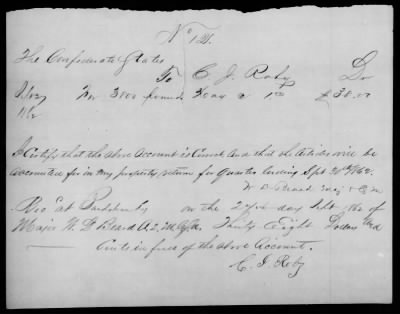 No 121.
The Confederate States
To C. J. Roby Dr
For 3800 pounds @ 1
I Certify that the above Account is Correct And that the Articles will be
accounted for in my property return for quarter ending Sept 30th 186
W D Beard Maj & Q M
Rec'd at on the day Sept 186 of
Major W D Beard Thirty Eight Dollars and
Cents in full of the above Account.
C. J. Roby